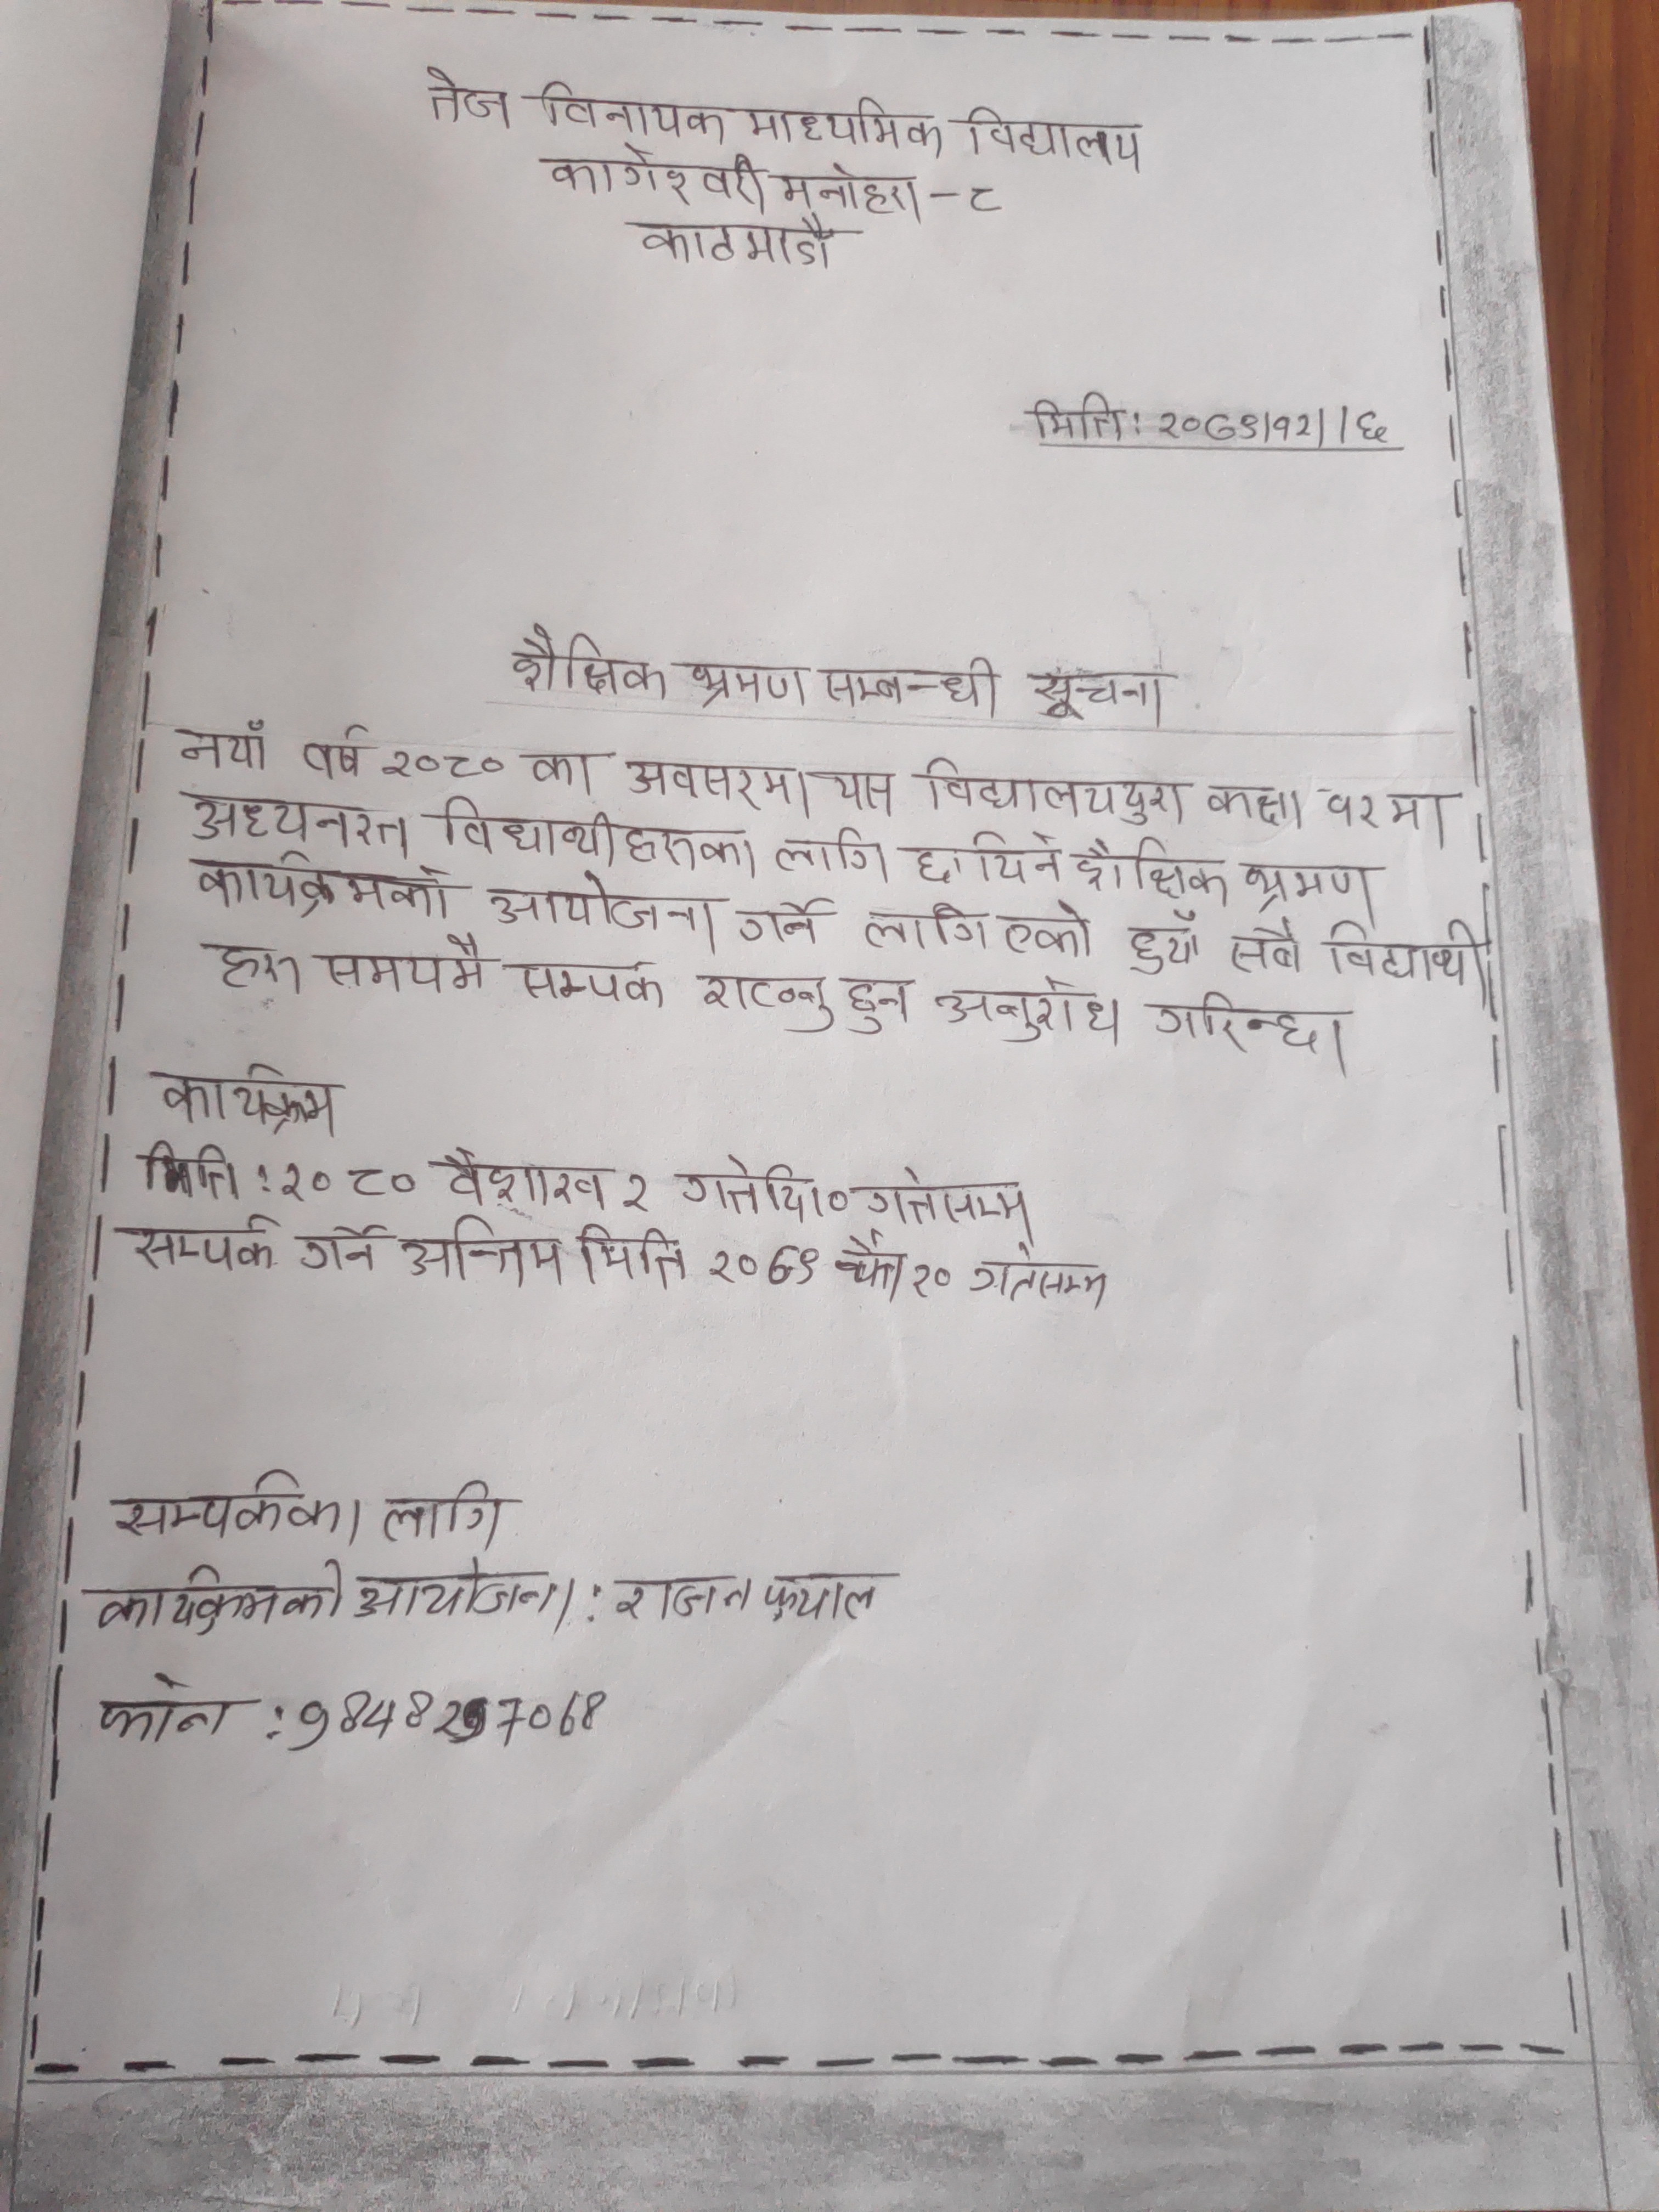 तेज विनायक माध्यमिक विद्यालय
कागेश्वरी मनोहरा-८
काठमाडौं
मिति: २०७९।१२।।६
शैक्षिक भ्रमण सम्बन्धी सूचना
नयाँ वर्ष २०८० का अवसरमा यस विद्यालयद्वारा कक्षा १२ मा
अध्यनरत विधार्थीहरुका लागि छायिने शैक्षिक भ्रमण
कार्यक्रमको आयोजना गर्न लागिएको हुयाँ सबै विद्यार्थी
हरु समयमै सम्पर्क राख्नु हुन अनुरोध गरिन्छ।
कार्यक्रम
मिति : २०८० वैशाख २ गते गतेसम्म
सम्पर्क गर्ने अन्तिम मिति २०७९ चैत २० गतेसम्म
सम्पर्कका लागि
कार्यक्रमको आयोजना : राजन फुयाल
फोन : 9848297068